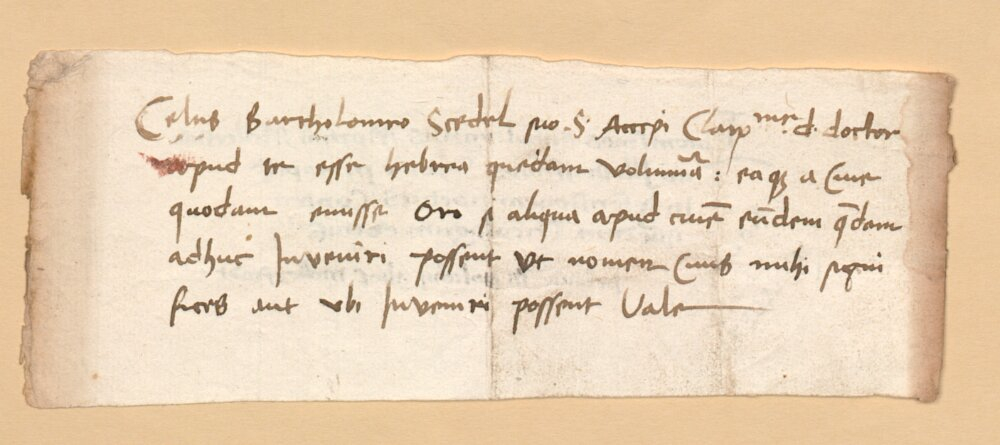 Celtis Bartholomeo Scedel suo .S. Accepi Clarᵐᵉ d. doctor
apud te esse hebrea quedam volumina : eaqȝ a Cive
quodam emisse Oro si aliqua apud civē eūdem q̄dam
adhuc Inveniri possent vt nomen Civis mihi signi
fices aut vbi Inveniri possent Vale